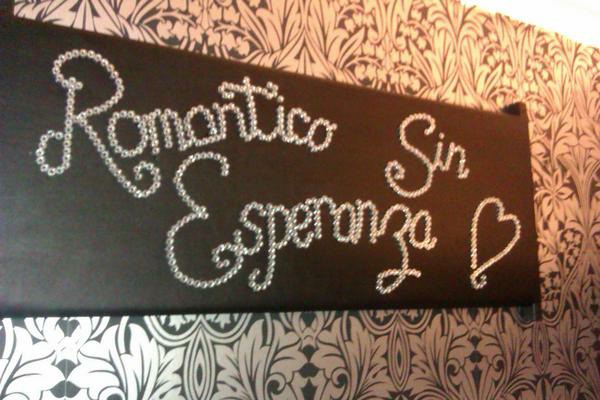 Romantico Sin
Esperanza